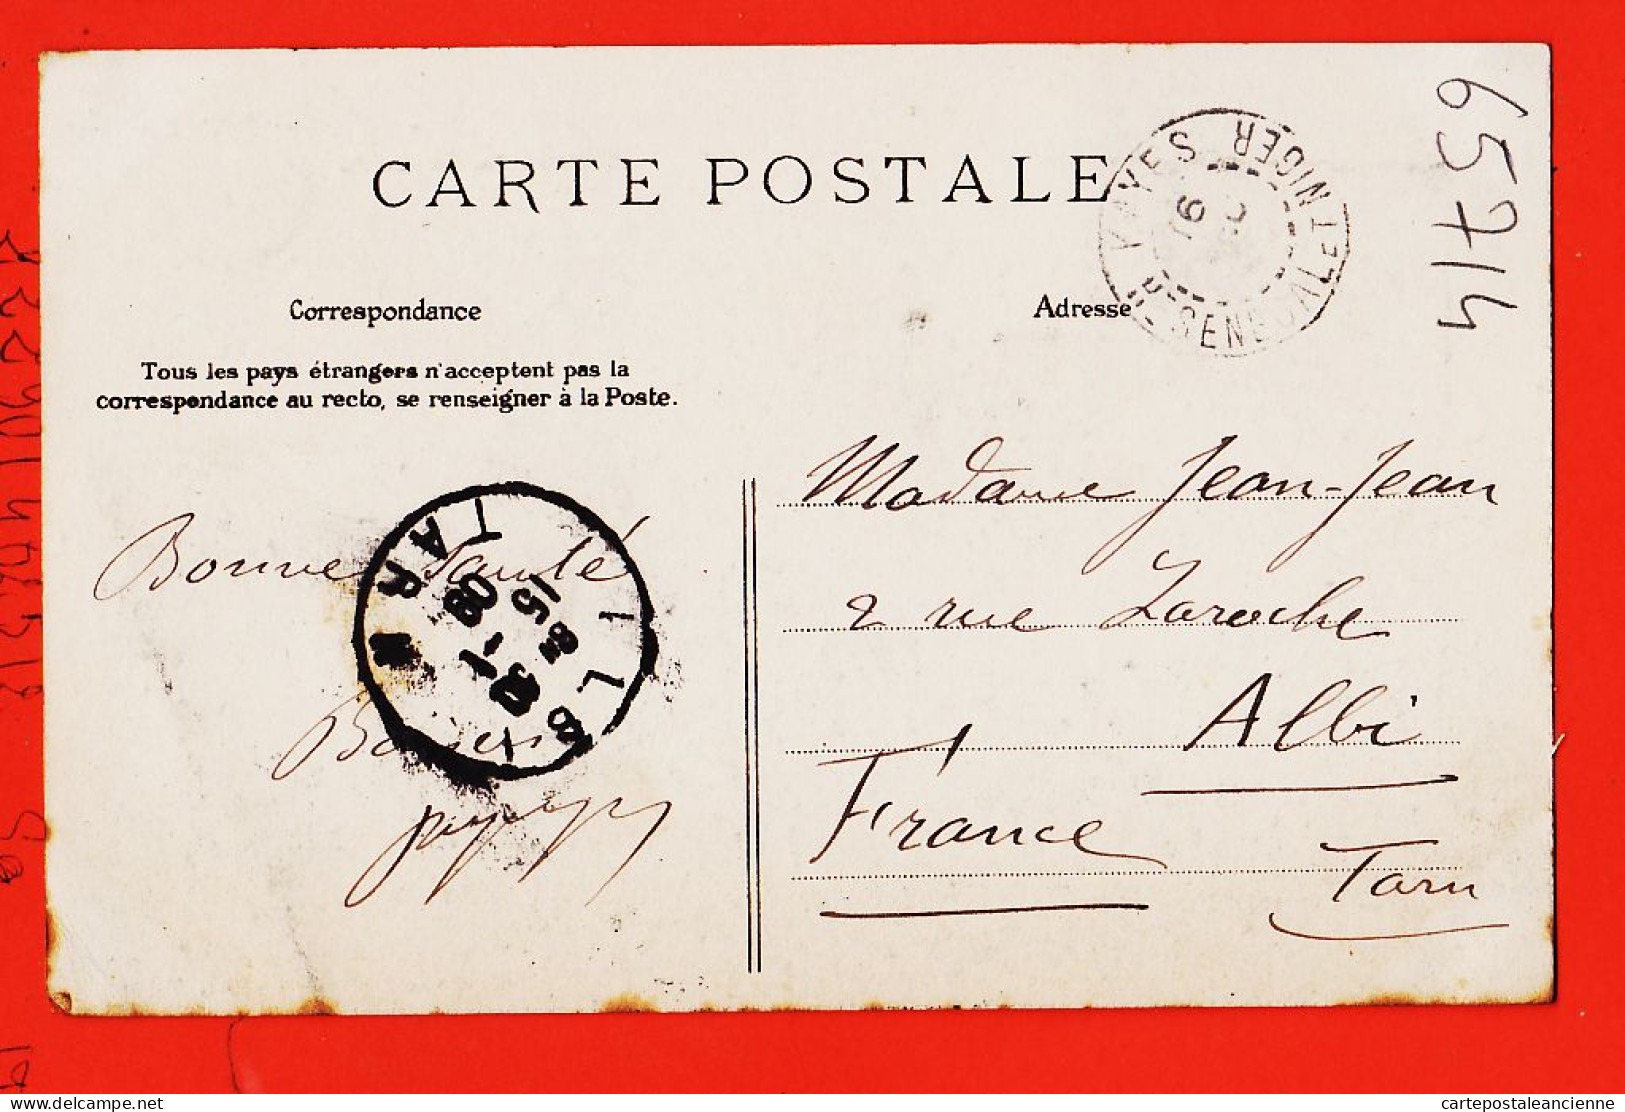 CARTE POSTALE
Correspondance
Adresse
Tous les pays étrangers n'acceptent pas la
correspondance au recto, se renseigner à la Poste.
KAYES
16
NIGER
65714
Madame Jean-Jean
2 rue Laroche
Albi
France
Tarn
Bonne Santé
Baisers
ALBI
TARN
15
08
delcampe.net
cartepostaleancienne